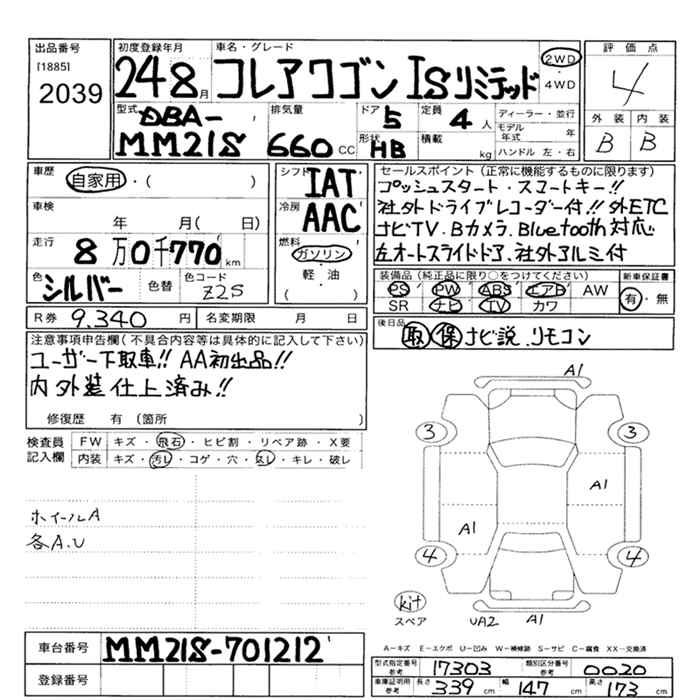 出品番号
[1885]
2039
初度登録年月
24 8月
車名・グレード
コレアワゴン ISリミテッド
2WD
・
4WD
評価点
4
外装 内装
B B
型式
DBA-
MM21S
排気量
660CC
ドア 5
形状 HB
定員 4人
積載 kg
ディーラー・並行
モデル年式 年
ハンドル 左・右
車歴
自家用・( )
車検
年 月( 日)
走行
8万0千770km
色
シルバー
色替
色コード
Z2S
シフト
IAT
冷房
AAC
燃料
ガソリン
・
軽・油
( )
R券 9.340円
名変期限 月 日
セールスポイント(正常に機能するものに限ります)
プッシュスタート・スマートキー!!
社外ドライブレコーダー付!!外ETC
ナビTV.Bカメラ.Bluetooth対応
左オートスライドドア.社外アルミ付
装備品(純正品に限り○をつけてください)
PS PW ABS エアB AW
SR ナビ TV カワ
新車保証書
有・無
後日品
取 保 ナビ説.リモコン
注意事項申告欄(不具合内容等は具体的に記入して下さい)
ユーザー下取車!! AA初出品!!
内外装仕上済み!!
修復歴 有(箇所
検査員
記入欄
FW キズ・飛石・ヒビ割・リペア跡・X要
内装 キズ・汚レ・コゲ・穴・スレ・キレ・破レ
ホイールA
各A.U
A1
3 3
A1
A1
4 4
kit
スペア
UA2 A1
車台番号 MM21S-701212
登録番号
A-キズ E-エクボ U-凹み W-補修跡 S-サビ C-腐食 XX-交換済
型式指定番号 参考 17303
類別区分番号 参考 0020
車庫証明用 参考 長さ 339cm 幅 147cm 高さ 173cm